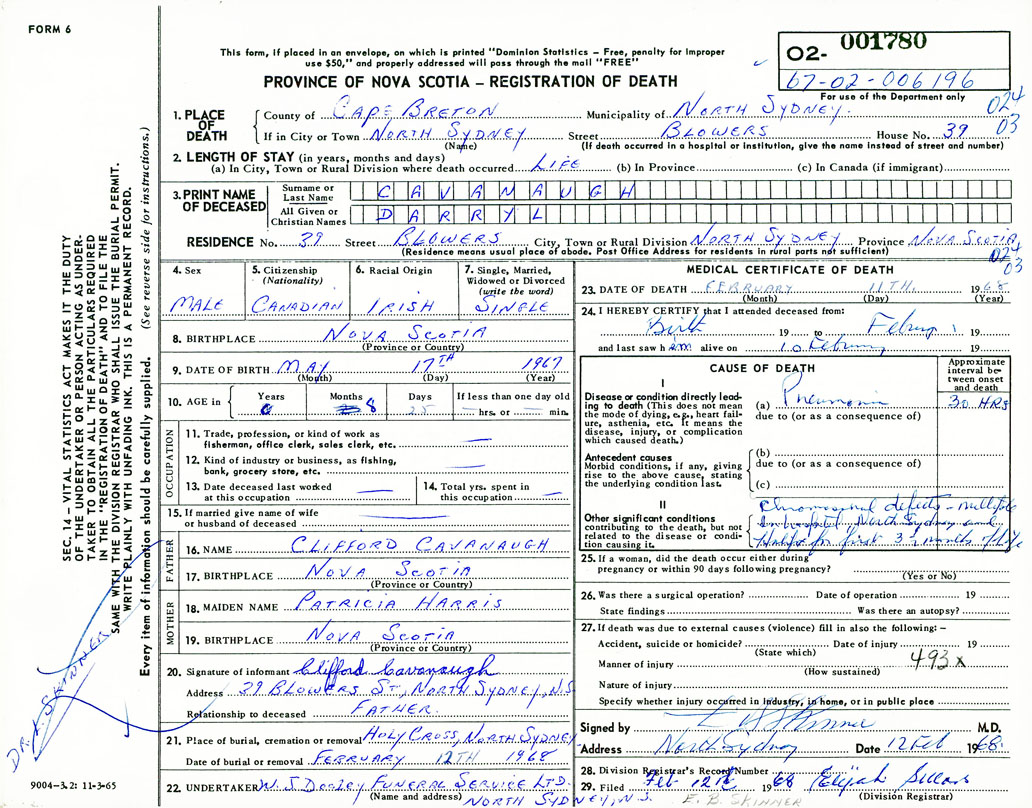 FORM 6
This form, if placed in an envelope, on which is printed "Dominion Statistics – Free, penalty for improper
use $50," and properly addressed will pass through the mail "FREE"
PROVINCE OF NOVA SCOTIA – REGISTRATION OF DEATH
02- 001780
67-02-006196
For use of the Department only
024
03
1. PLACE OF DEATH
County of CAPE BRETON Municipality of NORTH SYDNEY.
If in City or Town NORTH SYDNEY Street BLOWERS House No. 39
(Name) (If death occurred in a hospital or institution, give the name instead of street and number)
2. LENGTH OF STAY (in years, months and days)
(a) In City, Town or Rural Division where death occurred LIFE (b) In Province (c) In Canada (if immigrant)
3. PRINT NAME OF DECEASED
Surname or Last Name CAVANAUGH
All Given or Christian Names DARRYL
RESIDENCE No. 39 Street BLOWERS City, Town or Rural Division NORTH SYDNEY Province NOVA SCOTIA
(Residence means usual place of abode. Post Office Address for residents in rural parts not sufficient)
024
03
4. Sex MALE
5. Citizenship (Nationality) CANADIAN
6. Racial Origin IRISH
7. Single, Married, Widowed or Divorced (write the word) SINGLE
8. BIRTHPLACE NOVA SCOTIA
(Province or Country)
9. DATE OF BIRTH MAY 17TH 1967
(Month) (Day) (Year)
10. AGE in Years Months 8 Days 25 If less than one day old hrs. or min.
OCCUPATION
11. Trade, profession, or kind of work as
fisherman, office clerk, sales clerk, etc.
12. Kind of industry or business, as fishing,
bank, grocery store, etc.
13. Date deceased last worked
at this occupation
14. Total yrs. spent in
this occupation
15. If married give name of wife
or husband of deceased
FATHER
16. NAME CLIFFORD CAVANAUGH
17. BIRTHPLACE NOVA SCOTIA
(Province or Country)
MOTHER
18. MAIDEN NAME PATRICIA HARRIS
19. BIRTHPLACE NOVA SCOTIA
(Province or Country)
20. Signature of informant Clifford Cavanaugh
Address 39 BLOWERS ST., NORTH SYDNEY, N.S
Relationship to deceased FATHER.
21. Place of burial, cremation or removal HOLY CROSS, NORTH SYDNEY
Date of burial or removal FEBRUARY 12TH 1968
22. UNDERTAKER W. J. DOOLEY FUNERAL SERVICE LTD.
(Name and address) NORTH SYDNEY, N.S.
MEDICAL CERTIFICATE OF DEATH
23. DATE OF DEATH FEBRUARY 11TH. 1968
(Month) (Day) (Year)
24. I HEREBY CERTIFY that I attended deceased from:
Birth 19 to 19
and last saw him alive on 10 February 19
CAUSE OF DEATH
Approximate interval between onset and death
I
Disease or condition directly leading to death (This does not mean
the mode of dying, e.g., heart failure, asthenia, etc. It means the
disease, injury, or complication
which caused death.)
(a) Pneumonia 30 HRS
due to (or as a consequence of)
Antecedent causes
Morbid conditions, if any, giving
rise to the above cause, stating
the underlying condition last.
(b)
due to (or as a consequence of)
(c)
II
Other significant conditions
contributing to the death, but not
related to the disease or condition causing it.
Chromosomal defects - multiple
In hospital, North Sydney and
Halifax for first 3½ months of life
25. If a woman, did the death occur either during
pregnancy or within 90 days following pregnancy?
(Yes or No)
26. Was there a surgical operation? Date of operation 19
State findings Was there an autopsy?
27. If death was due to external causes (violence) fill in also the following: –
Accident, suicide or homicide? Date of injury 19
(State which)
Manner of injury 493x
(How sustained)
Nature of injury
Specify whether injury occurred in industry, in home, or in public place
Signed by Skinner M.D.
Address North Sydney Date 12 Feb 1968.
28. Division Registrar's Record Number
29. Filed Feb 12th 1968 Elijah
(Division Registrar)
E. B. SKINNER
SEC. 14 – VITAL STATISTICS ACT MAKES IT THE DUTY
OF THE UNDERTAKER OR PERSON ACTING AS UNDER-
TAKER TO OBTAIN ALL THE PARTICULARS REQUIRED
IN THE "REGISTRATION OF DEATH" AND TO FILE THE
SAME WITH THE DIVISION REGISTRAR WHO SHALL ISSUE THE BURIAL PERMIT.
WRITE PLAINLY WITH UNFADING INK. THIS IS A PERMANENT RECORD.
Every item of information should be carefully supplied. (See reverse side for instructions.)
DR. SKINNER
9004–3.2: 11-3-65